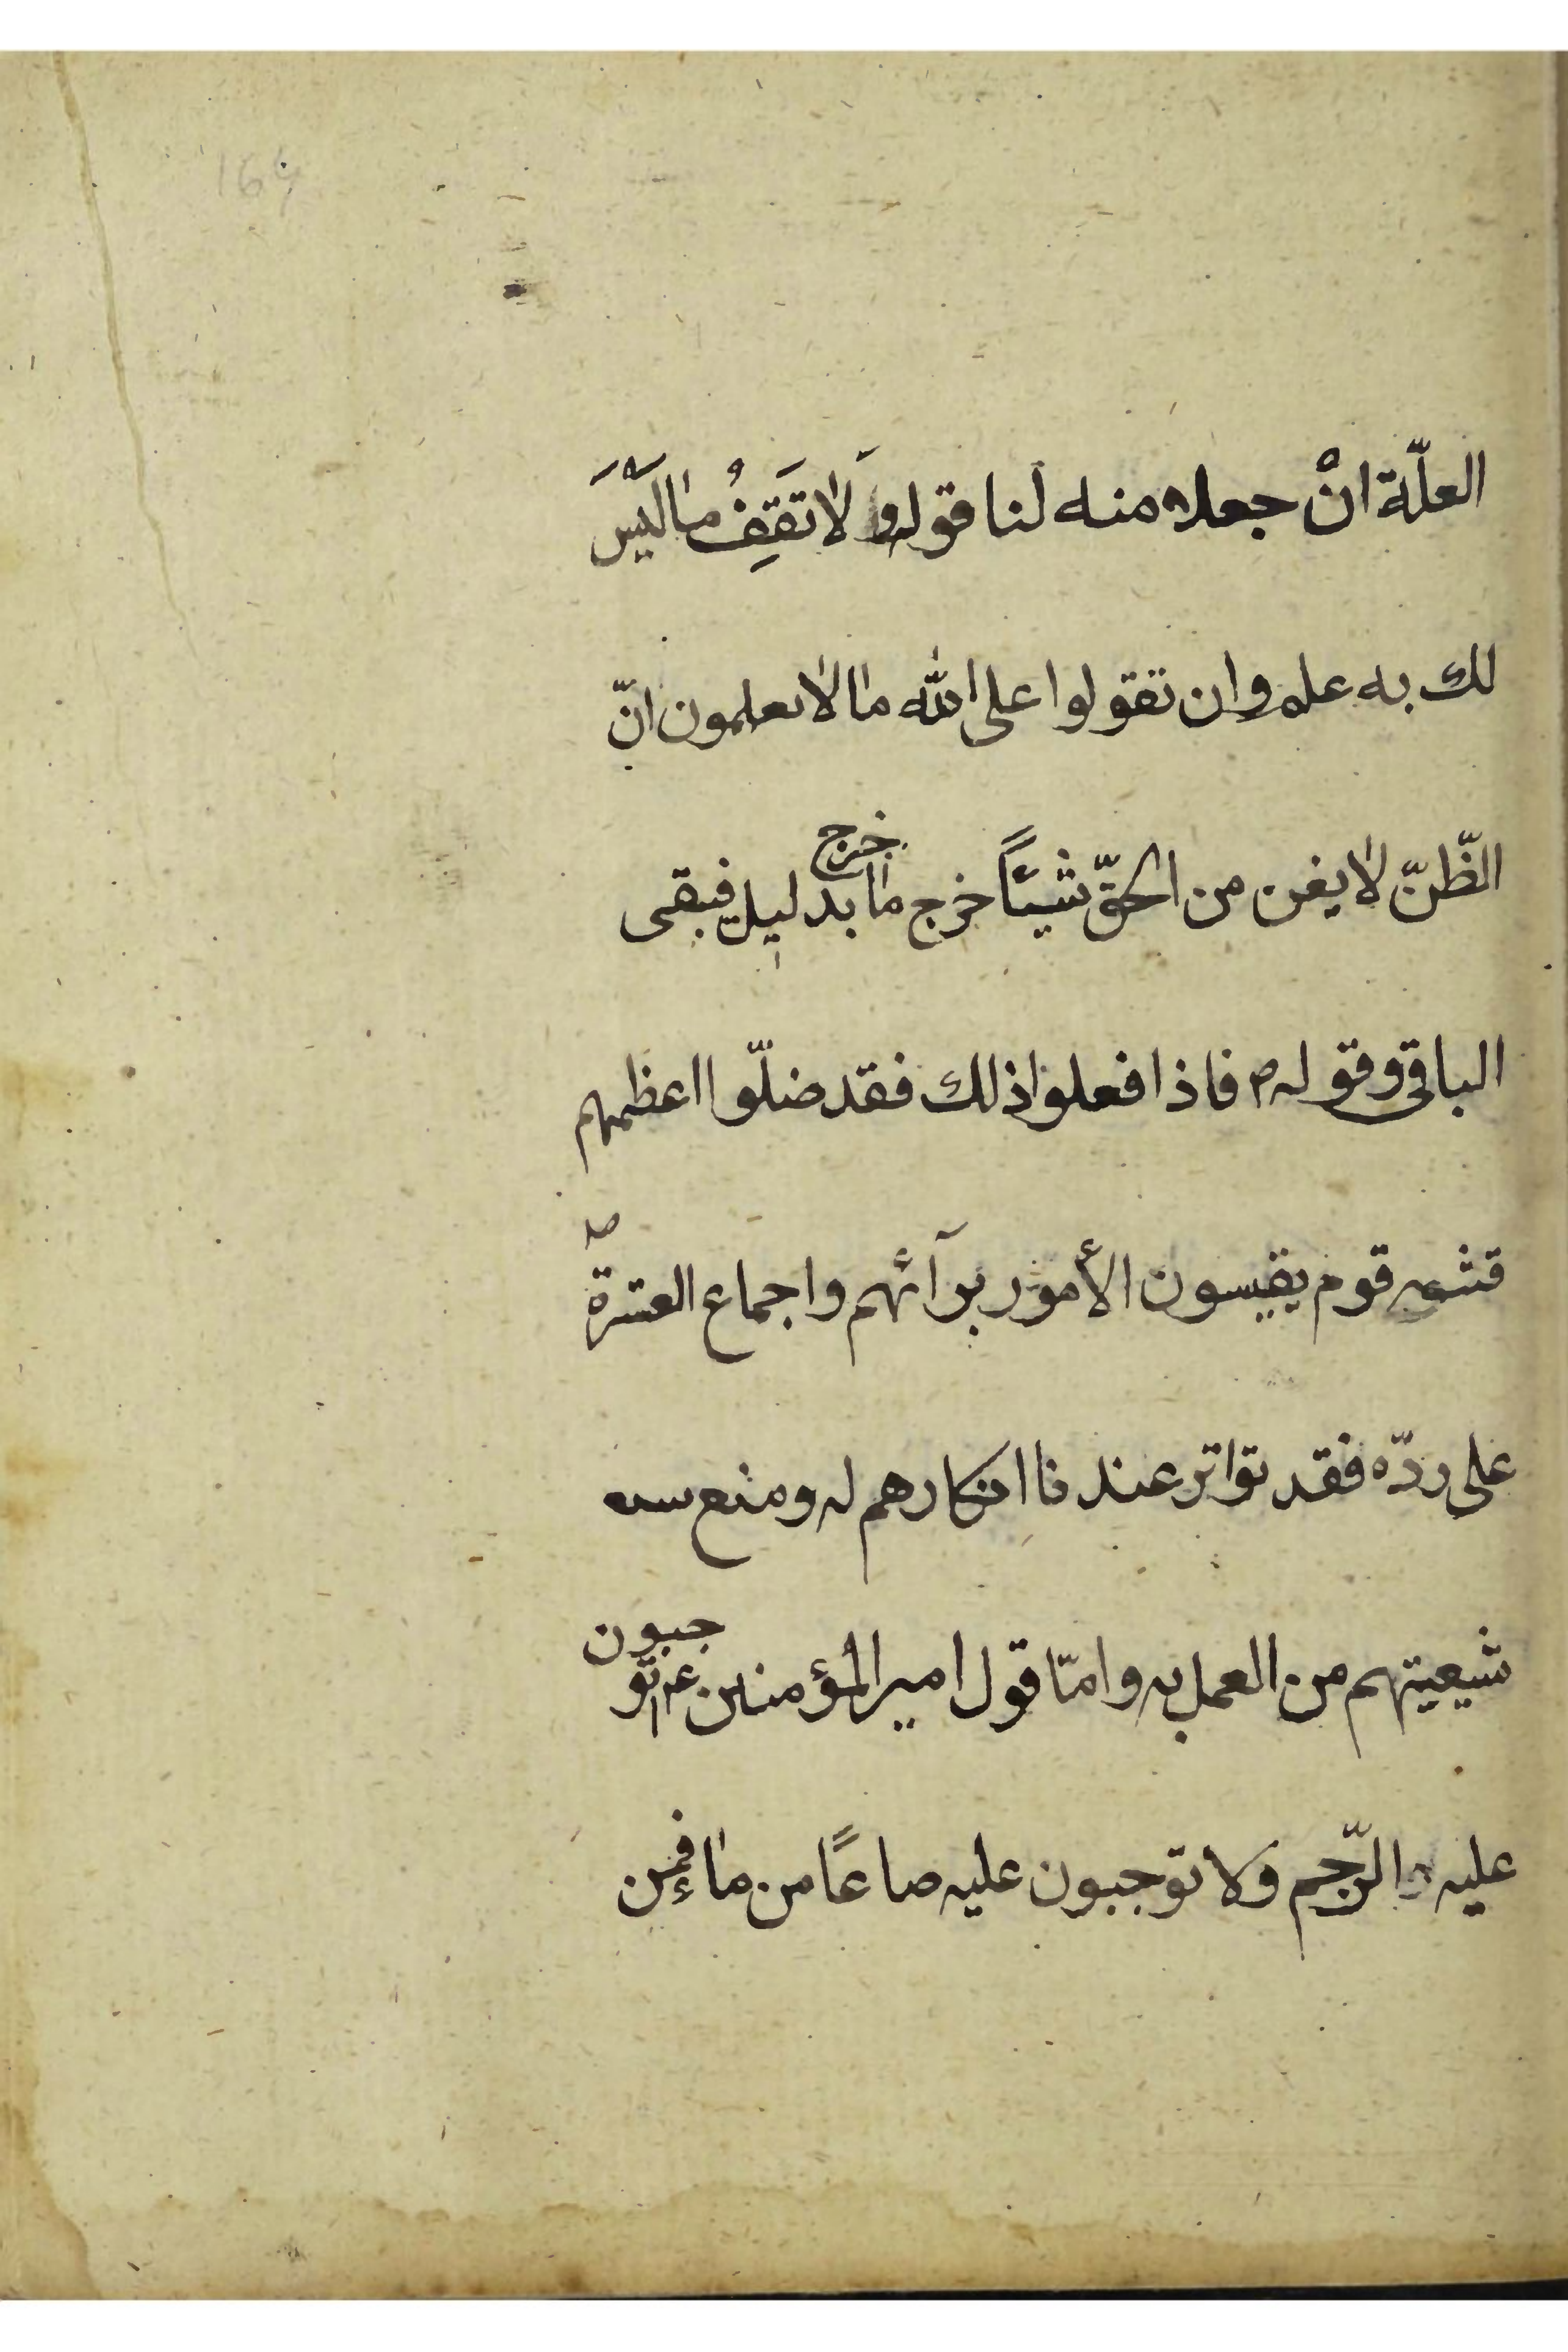 164
العلّة انْ جعله منه لنا قوله وَلا تَقفُِ ما لَيْسَ
لك به علم وان تقولوا على الله ما لا تعلمون انّ
الظّنّ لا يغن من الحقّ شيئاً خرج ما خرج بدليل فيبقى
الباقي وقوله ص فاذا فعلوا ذلك فقد ضلّوا اعظمهم
فتنه قوم يقيسون الأمور برآئهم واجماع العترة ص
على ردّه فقد تواتر عندنا انكارهم له ومنع
شيعيتهم من العمل به وامّا قول امير المؤمنين عم توجبون
عليه الرّجم ولا توجبون عليه صاعًا من ماء فمن